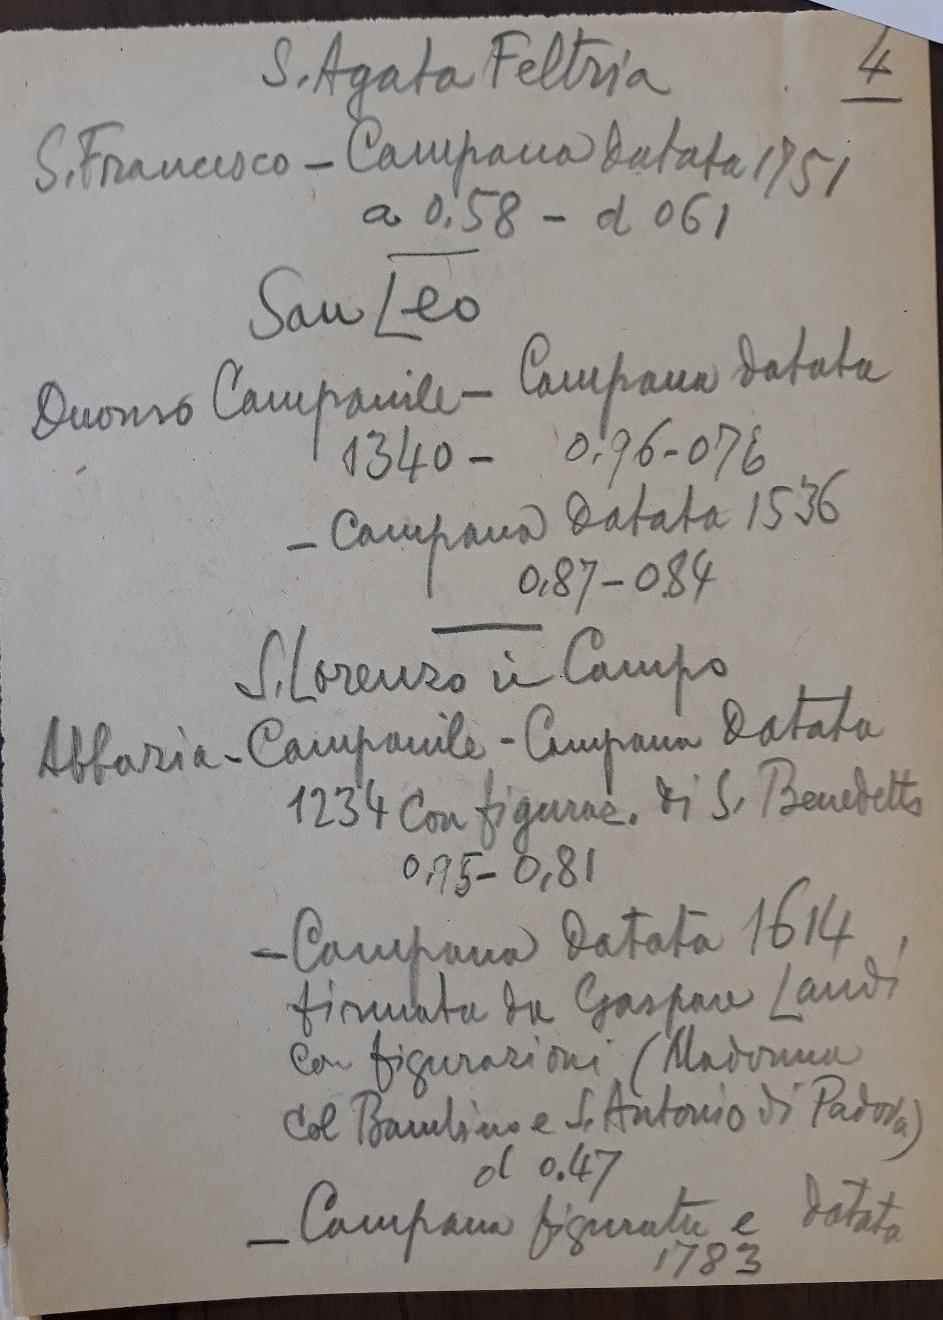 4
S. Agata Feltria
S. Francesco - Campana datata 1751
a 0.58 - d 061
San Leo
Duomo Campanile - Campana datata
1340 - 0,96-076
- Campana datata 1536
0,87-084
S. Lorenzo in Campo
Abbazia - Campanile - Campana datata
1234 con figuraz. di S. Benedetto
0,95-0,81
- Campana datata 1614,
firmata da Gaspare Landi
con figurazioni (Madonna
col Bambino e S. Antonio di Padova)
d 0.47
- Campana figurata e datata
1783